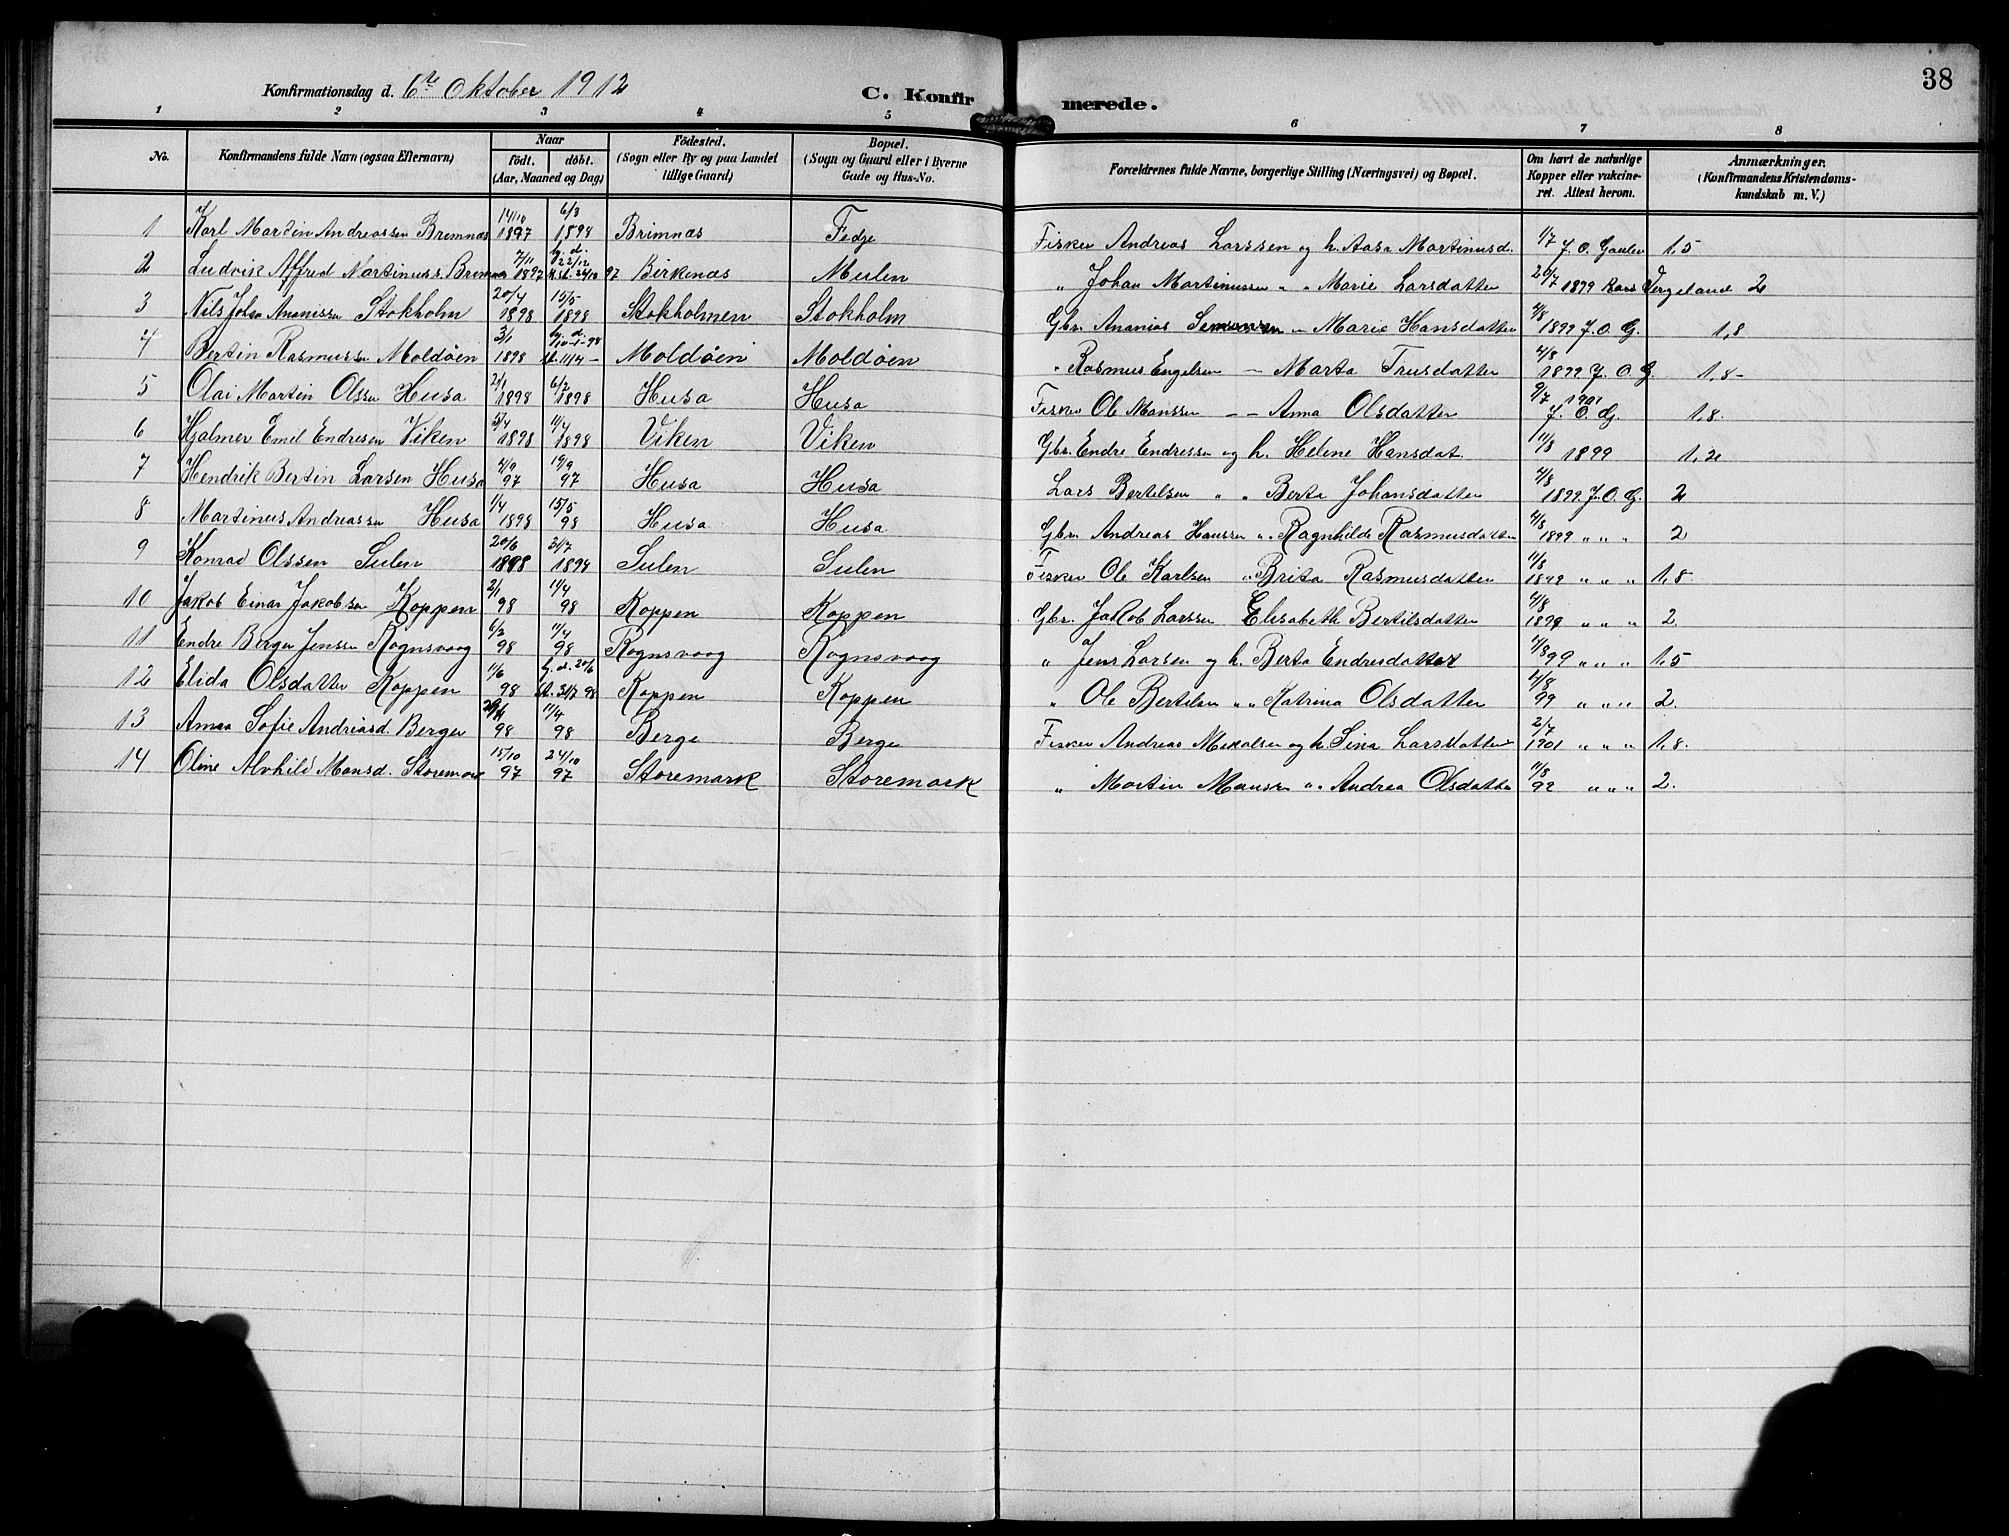 38
Konfirmationsdag d. 6te Oktober 1912
C. Konfirmerede.
1 2 3 4 5 6 7 8
No. Konfirmandens fulde Navn (ogsaa Efternavn) Naar født. døbt. (Aar, Maaned og Dag) Fødested. (Sogn eller By og paa Landet tillige Gaard) Bopæl. (Sogn og Gaard eller i Byerne Gade og Hus-No. Forældrenes fulde Navne, borgerlige Stilling (Næringsvei) og Bopæl. Om havt de naturlige Kopper eller vakcineret. Attest herom. Anmærkninger. (Konfirmandens Kristendomskundskab m. V.)
1 Karl Martin Andreassen Brimnæs 14/10 1897 6/3 1898 Brimnæs Fedje Fisker Andreas Larssen og h. Aasa Martinusd. 1/7 J. O. 1.5
2 Ludvik Alfred Martinuss. 7/11 1897 hj. d. 22/12 97 Birkenæs Mulen „ Johan Martinussen „ „ Marie Larsdatter 20/7 1899 Lars Vergeland 2
3 Nils Johan Ananissen Stokholm 20/4 1898 15/5 1898 Stokholmen Stokholm Gbr. Ananias „ Marie Hansdatter 4/8 1899 J. O. G. 1,8
4 Bertin Rasmussen Moldøen 3/1 1898 hj. d. 10-1-98 st. 11/4 – Moldøen Moldøen „ Rasmus Engelsen – Marta Trusdatter 4/8 1899 J. O. G. 1,8-
5 Olai Martin Olssen Husa 21/1 1898 6/2 1898 Husa Husa Fisker Ole Monssen – – Anna Olsdatter 9/7 1901 J. O. G. 1,8.
6 Hjalmer Emil Endresen Viken 5/4 1898 11/4 1898 Viken Viken Gbr. Endre Endressen og h. Helene Hansdat. 11/8 1899 1,2
7 Hendrik Bertin Larsen Husa 4/9 97 19/9 97 Husa Husa Lars Bertelsen „ „ Berta Johansdatter 4/8 1899 J. O. G. 2
8 Martinus Andreassen Husa 1/4 1898 15/5 98 Husa Husa Gbr. Andreas Hanssen „ „ Ragnhilde Rasmusdatter 4/8 1899 „ „ „ 2
9 Konrad Olssen Sulen 20/6 1898 31/7 1898 Sulen Sulen Fisker Ole Karlsen „ Brita Rasmusdatter 11/8 1899 „ „ „ 1,8
10 Jakob Einar Jakobsen Koppen 2/1 98 11/4 98 Koppen Koppen Gbr. Jakob Larssen Elisabeth Bertilsdatter 4/8 1899 „ „ „ 2
11 Endre Berger Jenssen Rognsvaag 6/2 98 11/4 98 Rognsvaag Rognsvaag „ Jens Larsen og h. Berta Endresdatter 11/8 99 „ „ „ 1,5
12 Elida Olsdatter Koppen 11/6 98 hj. d. 20/6 st. 31/7 98 Koppen Koppen „ Ole Bertelsen „ „ Katrina Olsdatter 4/8 99 „ „ „ 2.
13 Anna Sofie Andreasd. Berge 98 11/4 98 Berge Berge Fisker Andreas Mikalsen og h. Sina Larsdatter 2/7 1901 „ „ „ 1,8.
14 Oline Alvhild Monsd. Storemark 15/10 97 24/10 97 Storemark Storemark „ Martin Monsen „ „ Andrea Olsdatter 11/8 99 „ „ „ 2.